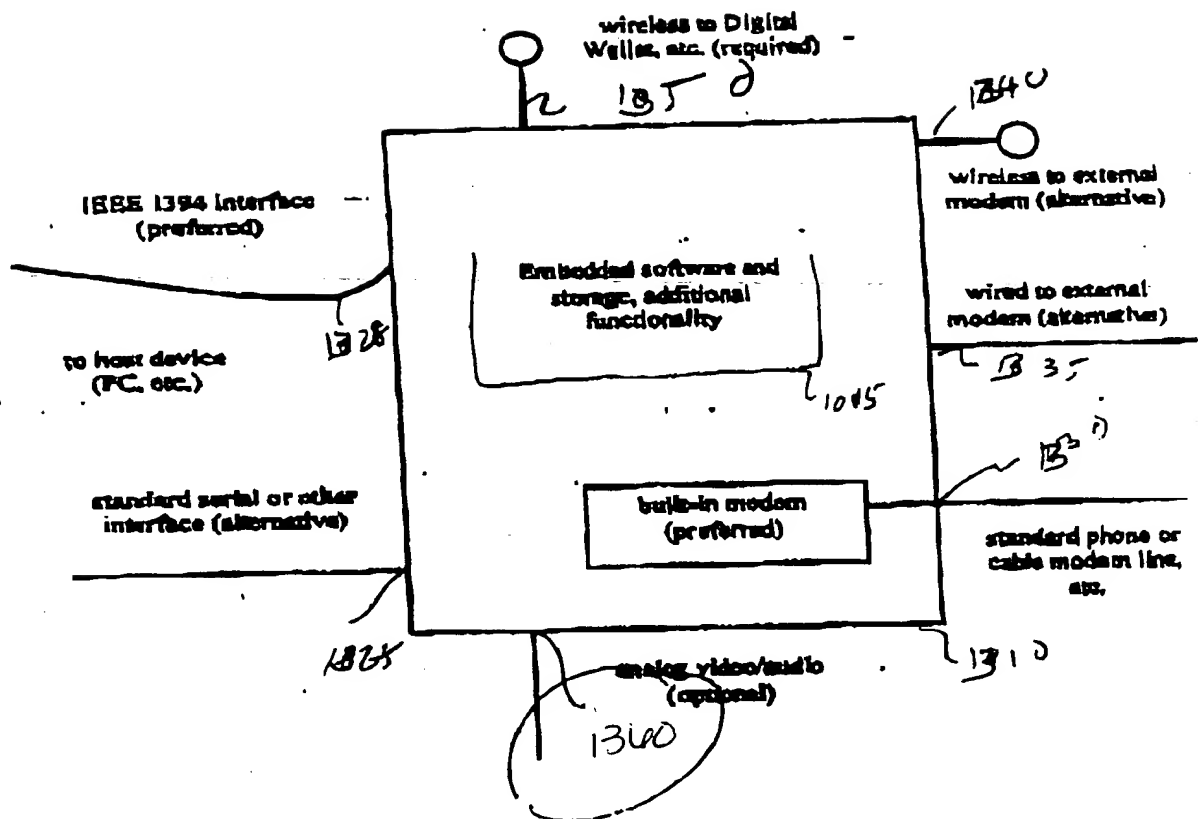 wireless to Digital
Wallet, etc. (required)
1340
wireless to external
modem (alternative)
IEEE 1394 interface
(preferred)
Embedded software and
storage, additional
functionality
wired to external
modem (alternative)
1328
to host device
(PC, etc.)
1335
1045
1330
standard serial or other
interface (alternative)
built-in modem
(preferred)
standard phone or
cable modem line,
etc.
1325
1310
analog video/audio
(optional)
1360